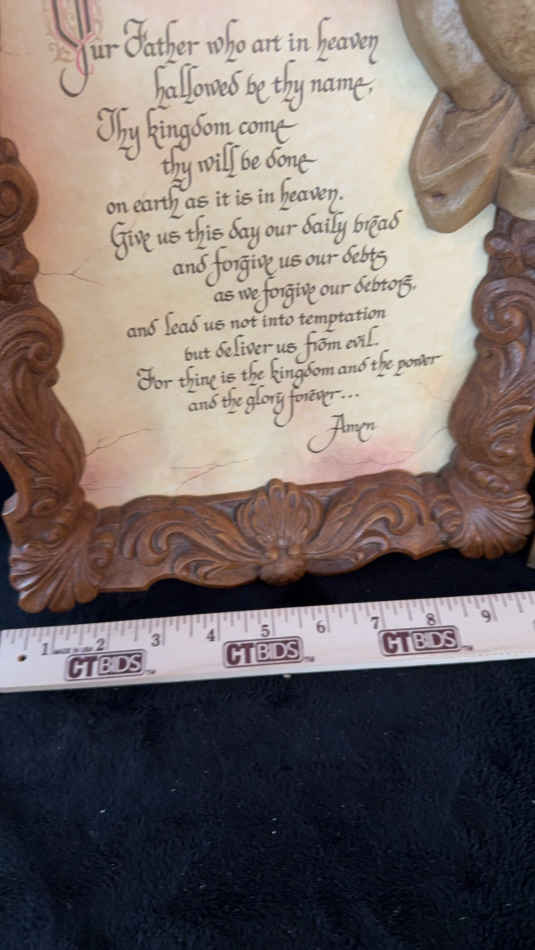 Our Father who art in heaven
hallowed be thy name,
Thy kingdom come
thy will be done
on earth as it is in heaven.
Give us this day our daily bread
and forgive us our debts
as we forgive our debtors,
and lead us not into temptation
but deliver us from evil.
For thine is the kingdom and the power
and the glory forever...
Amen
1 MADE IN USA 2 3 4 5 6 7 8 9
CTBIDS TM CTBIDS TM CTBIDS TM